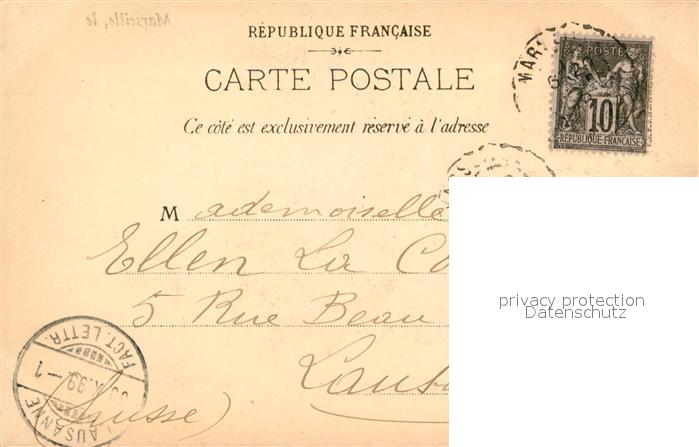 Marseille, le
RÉPUBLIQUE FRANÇAISE
CARTE POSTALE
Ce côté est exclusivement réservé à l'adresse
POSTE
10
RÉPUBLIQUE FRANÇAISE
Mademoiselle
Ellen La Co
5 Rue Beau
Laus
(Suisse)
FACT. LETTR.
99.-1
LAUSANNE
privacy protection
Datenschutz